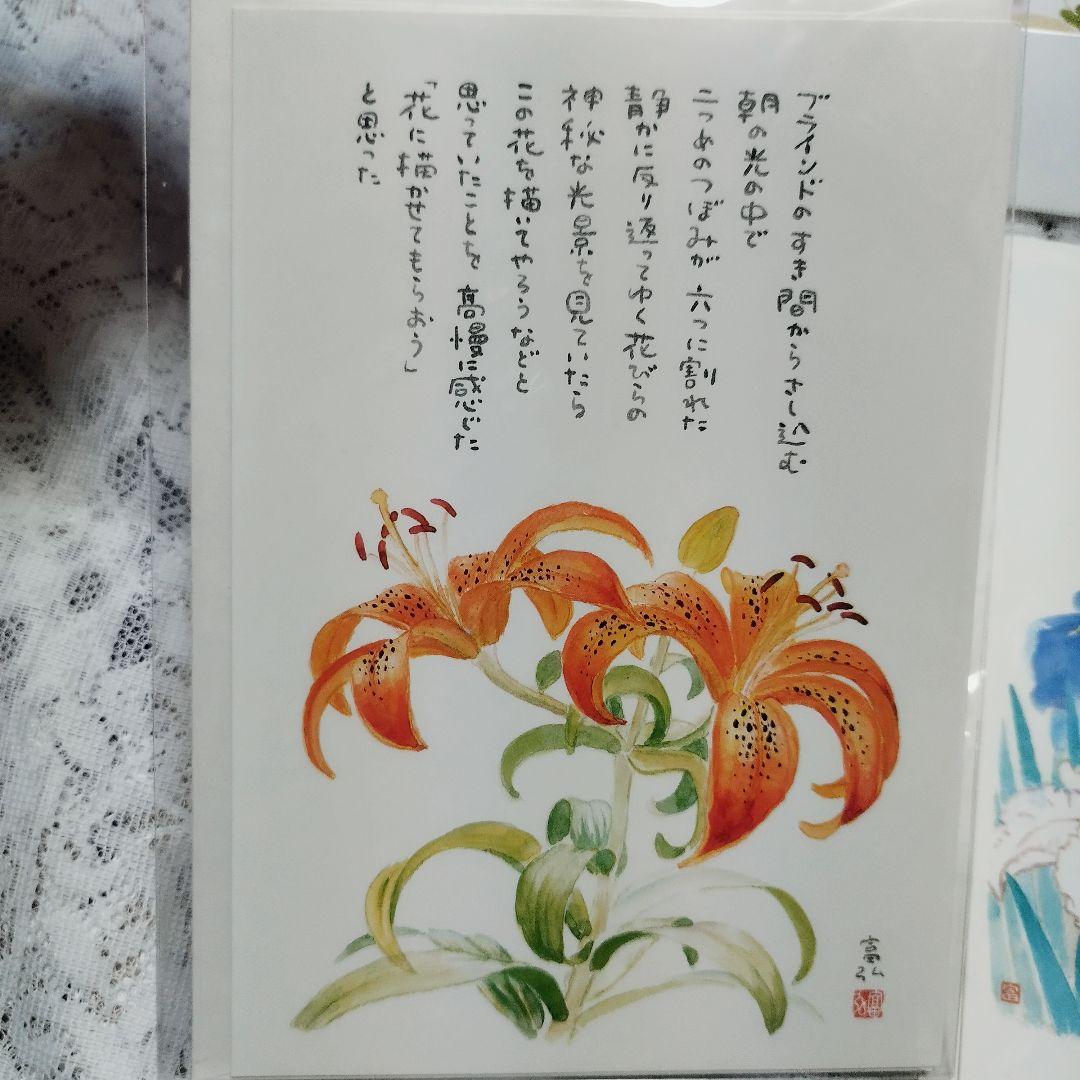 ブラインドのすき間からさし込む
朝の光の中で
二つめのつぼみが 六つに割れた
静かに反り返ってゆく花びらの
神秘な光景を見ていたら
この花を描いてやろうなどと
思っていたことを 高慢に感じた
「花に描かせてもらおう」
と思った
富弘